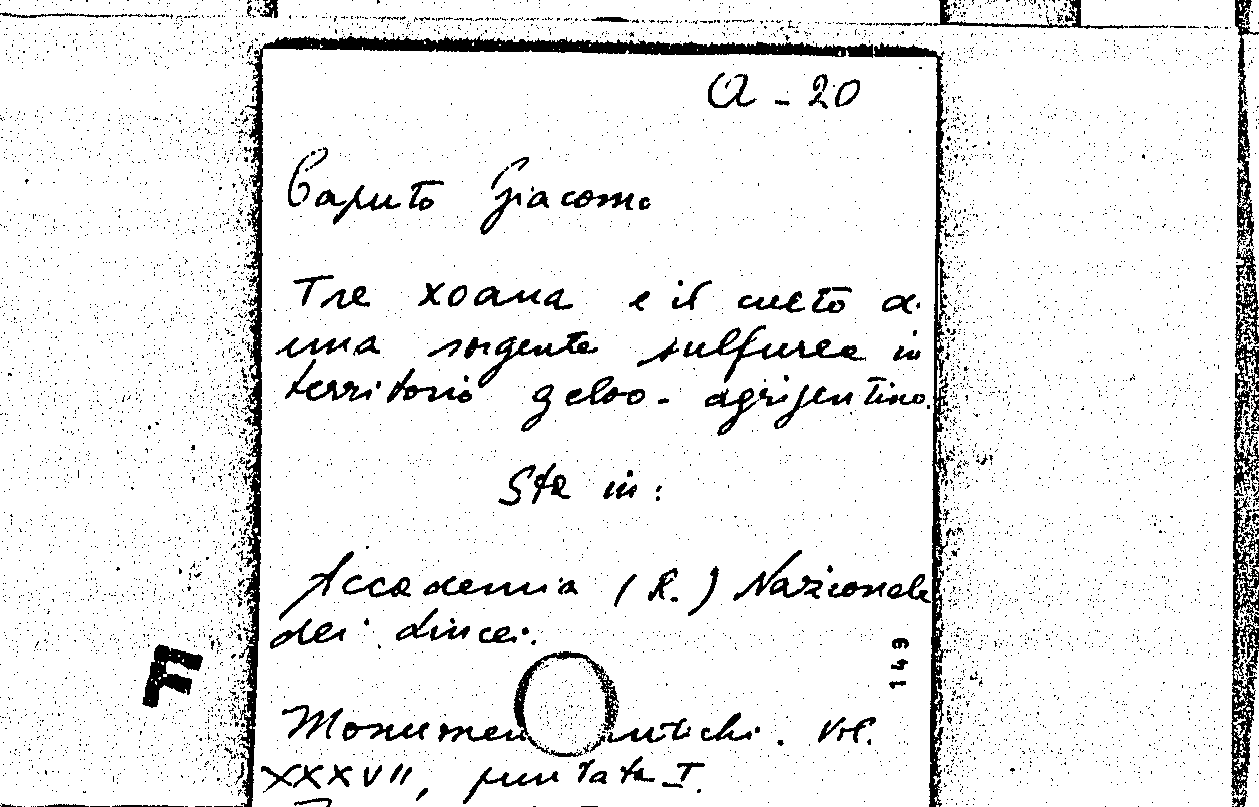 Q - 20
Caputo Giacomo
Tre xoana e il culto di
una sorgente sulfurea in
territorio geloo - agrigentino.
Sta in:
Accademia (R.) Nazionale
dei Lincei.
149
F
Monumen antichi. Vol.
XXXVII, puntata I.